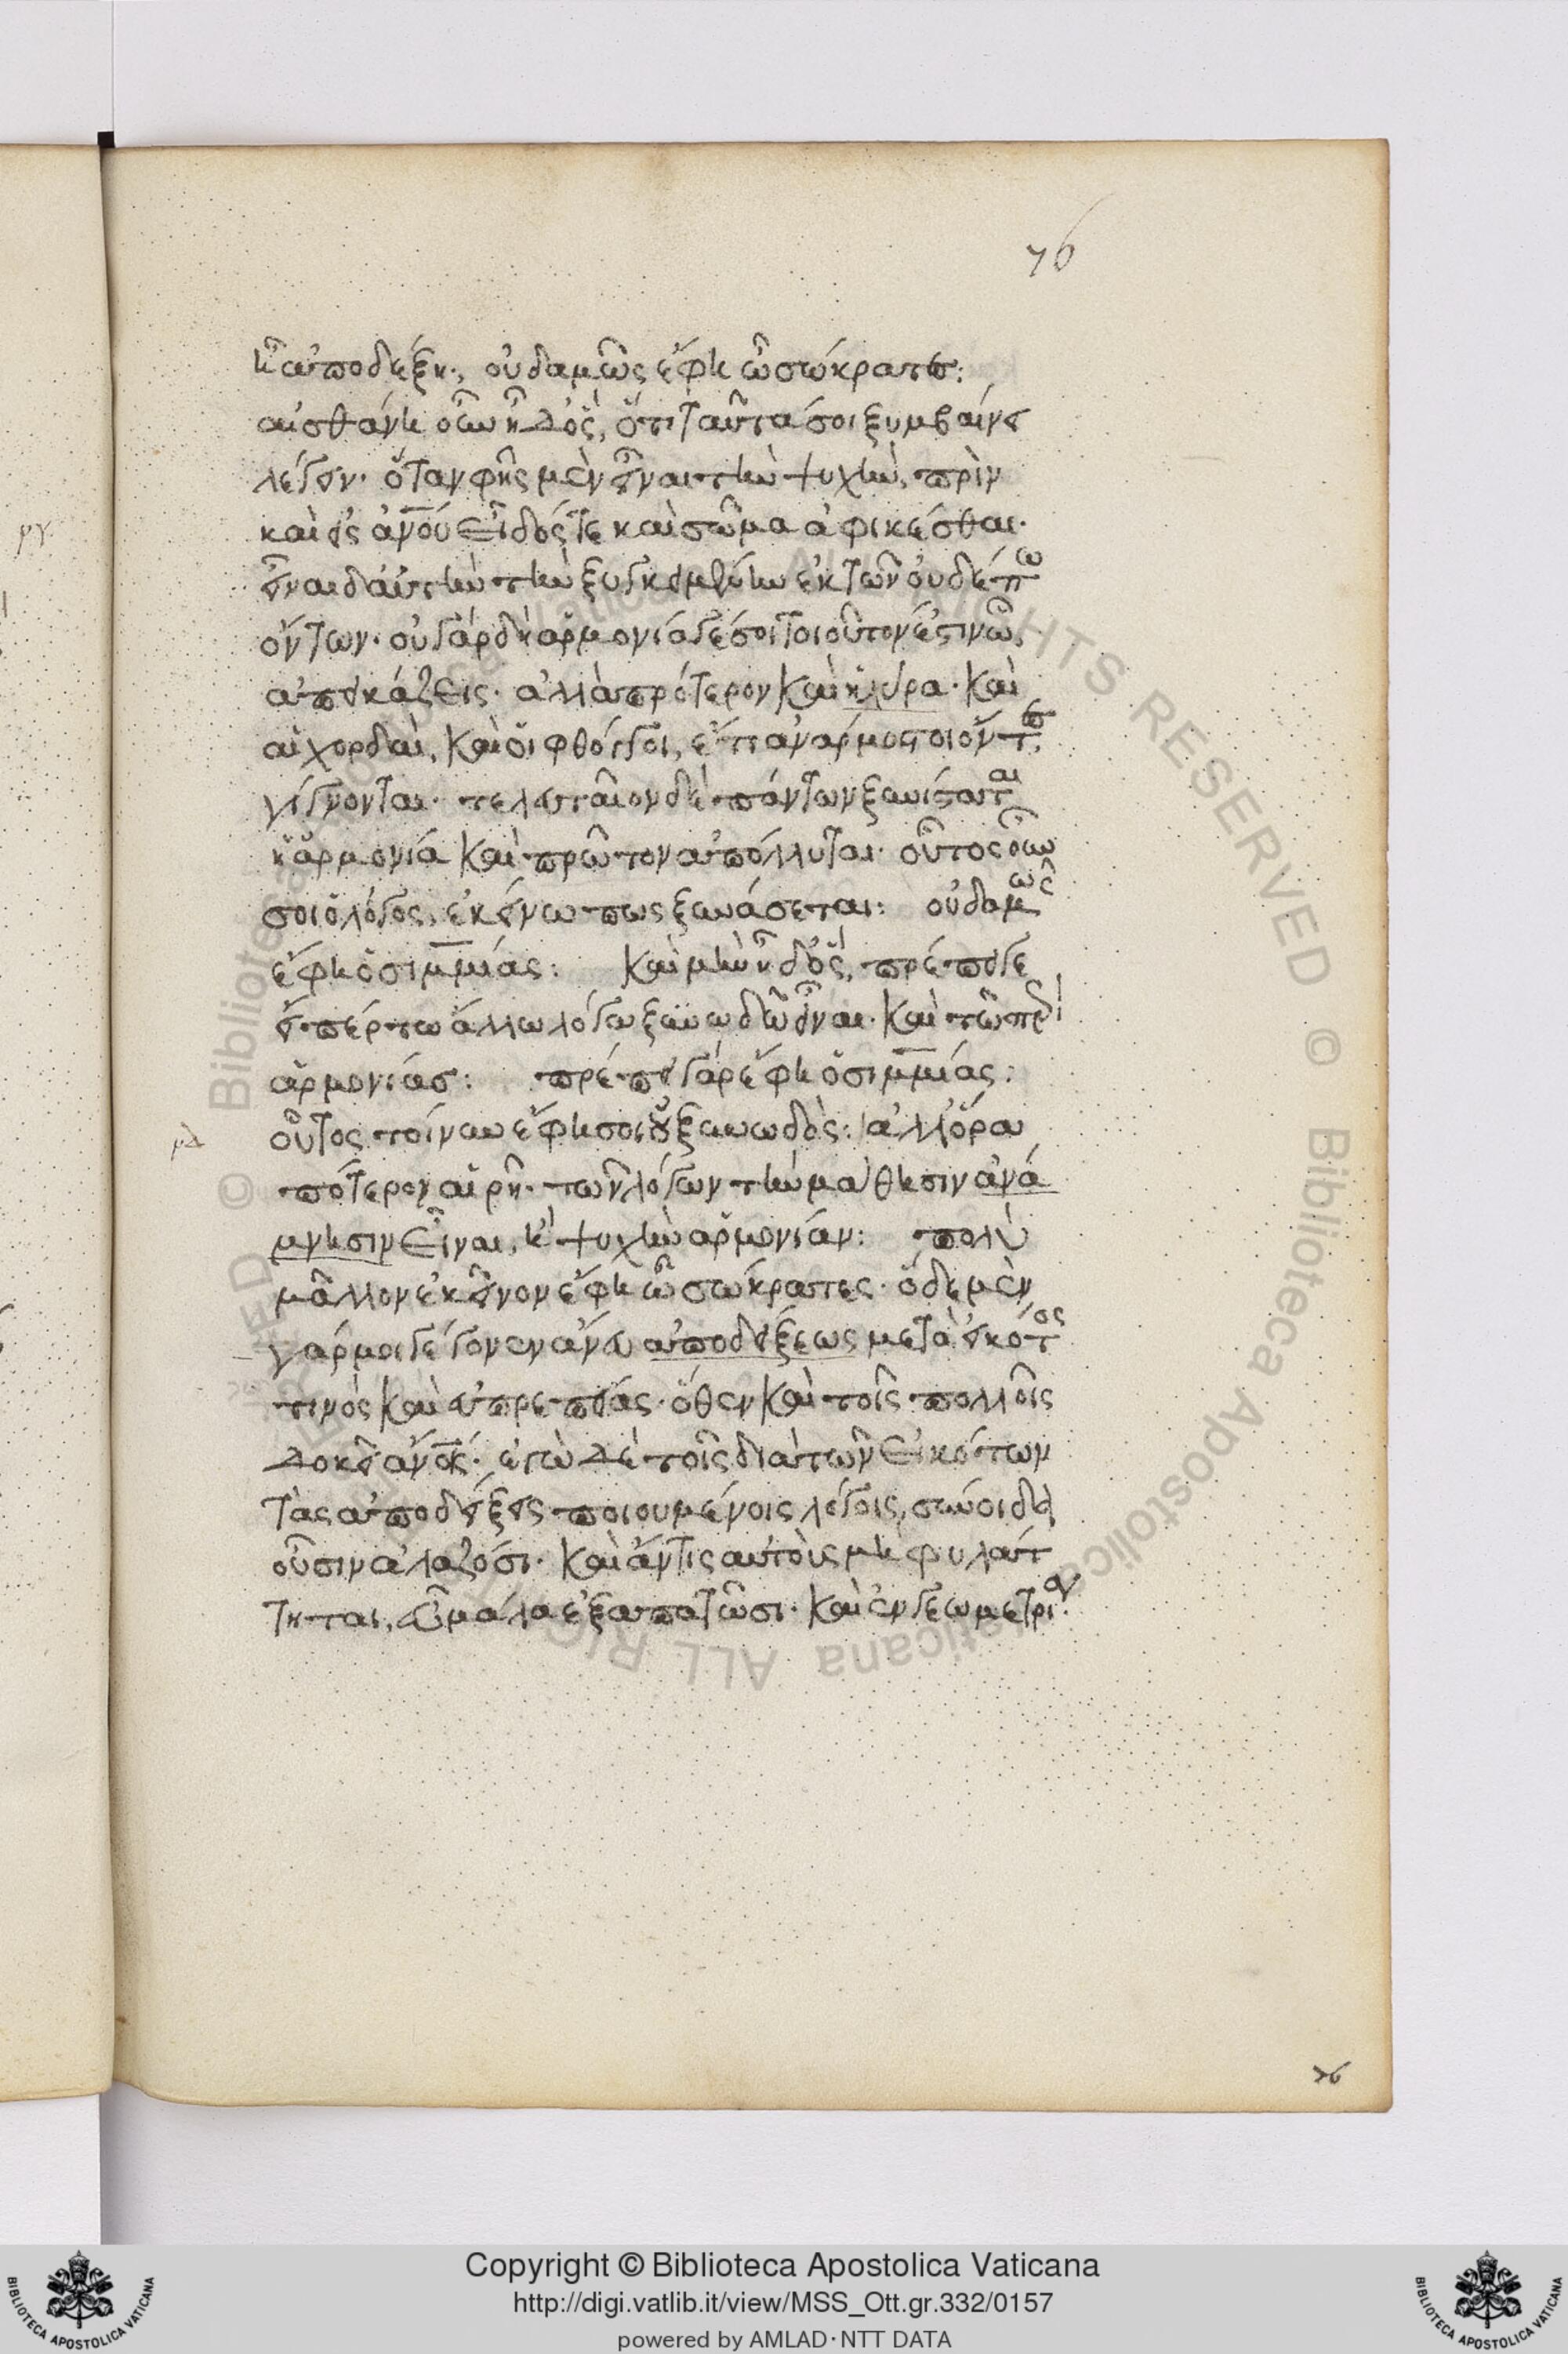 76
ἢ ἀποδέξῃ; οὐδαμῶς ἔφη ὦ σώκρατες:
αἰσθάνῃ οὖν ἦ δ' ὅς, ὅτι ταῦτά σοι ξυμβαίνει
λέγειν· ὅταν φῇς μὲν εἶναι τὴν ψυχὴν, πρὶν
καὶ εἰς ἀν̅ου εἶδός τε καὶ σῶμα ἀφικέσθαι·
εἶναι δ' αὐτὴν τὴν ξυγκειμένην ἐκ τῶν οὐδέπω
ὄντων· οὐ γὰρ δὴ ἁρμονία γέ σοι τοιοῦτον ἐστιν ὧ
ἀπεικάζεις· ἀλλὰ πρότερον καὶ ἡ λύρα· καὶ
αἱ χορδαὶ, καὶ οἱ φθόγγοι, ἔτι ἀνάρμοστοι ὄντες,
γίγνονται· τελευταῖον δὲ πάντων ξυνίσταται
ἡ ἁρμονία καὶ πρῶτον ἀπόλλυται· οὗτος οὖν
σοι ὁ λόγος, ἐκείνω πως ξυνάσεται: οὐδαμῶς
ἔφη ὁ σιμμίας: καὶ μὴν ἦ δ' ὅς, πρέπει γε
εἴπερ τω ἄλλω λόγω ξυνωδῶ εἶναι· καὶ τῶ περὶ
ἁρμονίας: πρέπει γὰρ ἔφη ὁ σιμμίας:
μδ
οὗτος τοίνυν ἔφη σοι οὐ ξυνωδὸς: ἀλλ' ὅρα
πότερον αἱρῇ τῶν λόγων τὴν μάθησιν ἀνά
μνησιν εἶναι, ἢ ψυχὴν ἁρμονίαν: πολὺ
μᾶλλον ἐκεῖνον ἔφη ὦ σώκρατες· ὅδε μὲν
γάρ μοι γέγονεν ἄνευ ἀποδείξεως μετὰ εἰκότος
τινὸς καὶ εὐπρεπείας· ὅθεν καὶ τοῖς πολλοῖς
δοκεῖ ἀν̅οις· ἐγὼ δὲ τοῖς διὰ τῶν εἰκότων
τὰς ἀποδείξεις ποιουμένοις λόγοις, σύνοιδα
οὖσιν ἀλαζόσι· καὶ ἄν τις αὐτοὺς μὴ φυλάτ
τηται, εὖ μάλα ἐξαπατῶσι· καὶ ἐν γεωμετρία·
76
Copyright © Biblioteca Apostolica Vaticana
http://digi.vatlib.it/view/MSS_Ott.gr.332/0157
powered by AMLAD·NTT DATA